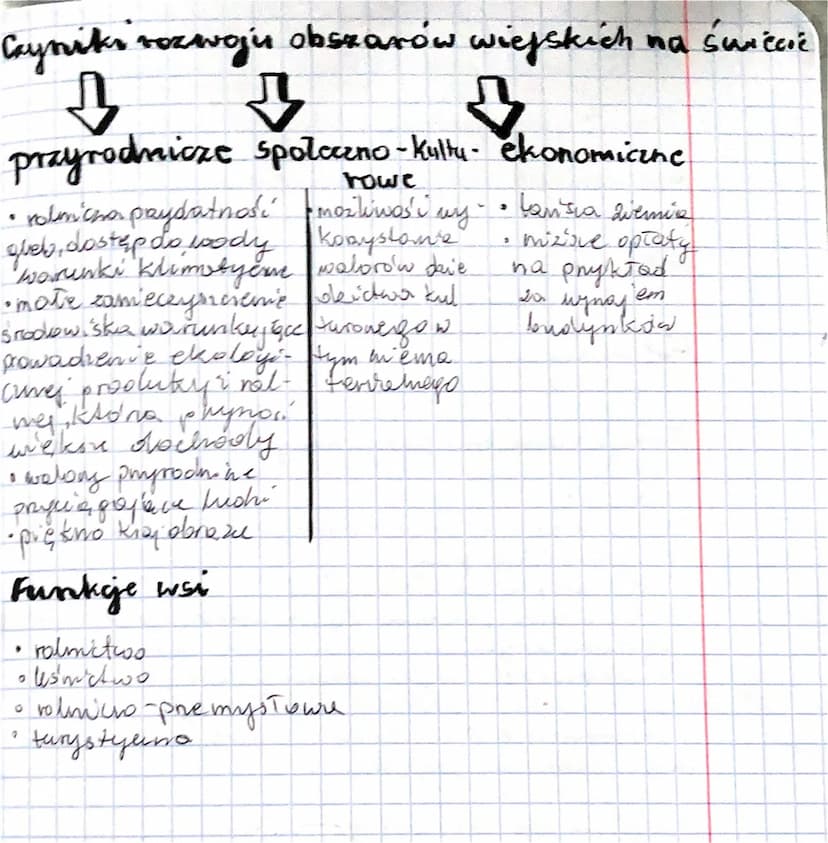 Czyniki rozwoju obszarów wiejskich na świecie
przyrodnicze społeczno-kultu-
rowe
ekonomiczne
• rolnicza przydatność
gleb, dostęp do wody
warunki klimatyczne
• małe zanieczyszczenie
środowiska warunkujące
prowadzenie ekologi-
cznej produkcji rol-
nej, która przynosi
większe dochody
• walory przyrodnicze
przyciągające ludzi
• piękno krajobrazu
możliwości wy-
korzystania
walorów dzie
dzictwa kul
turowego w
tym niema
terialnego
• tańsza ziemia
• niższe opłaty
na przykład
za wynajem
budynków
Funkcje wsi
• rolnictwo
• leśnictwo
• rolniczo-przemysłowe
• turystyczna